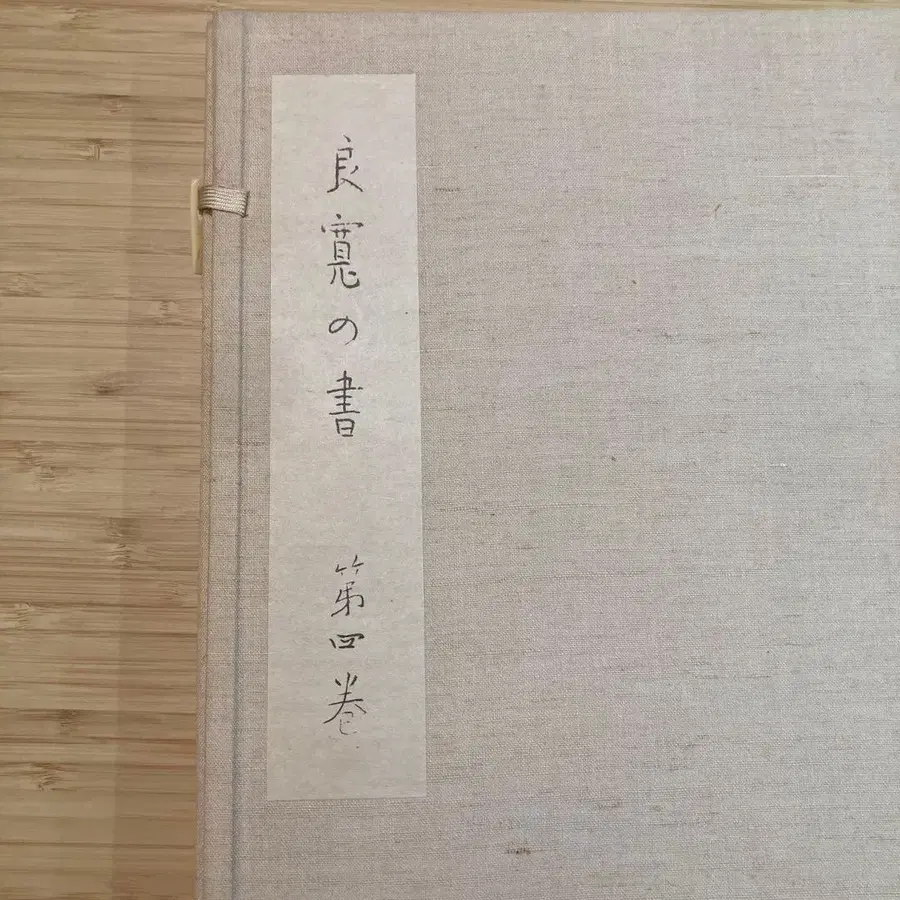 良寛の書 第四巻